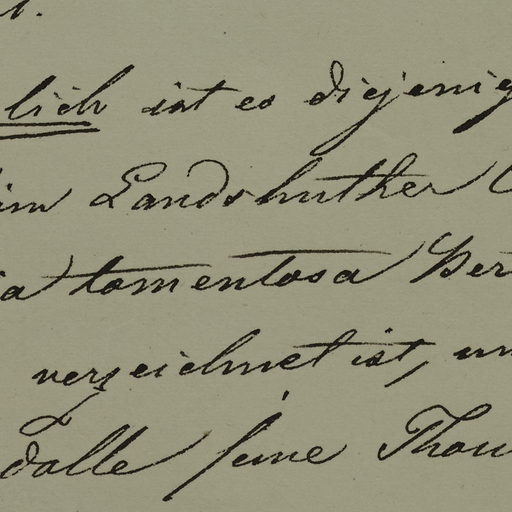 lich ist es diejenig
im Landshuther
ia tomentosa Her
verzeichnet ist, un
dalle June Thou